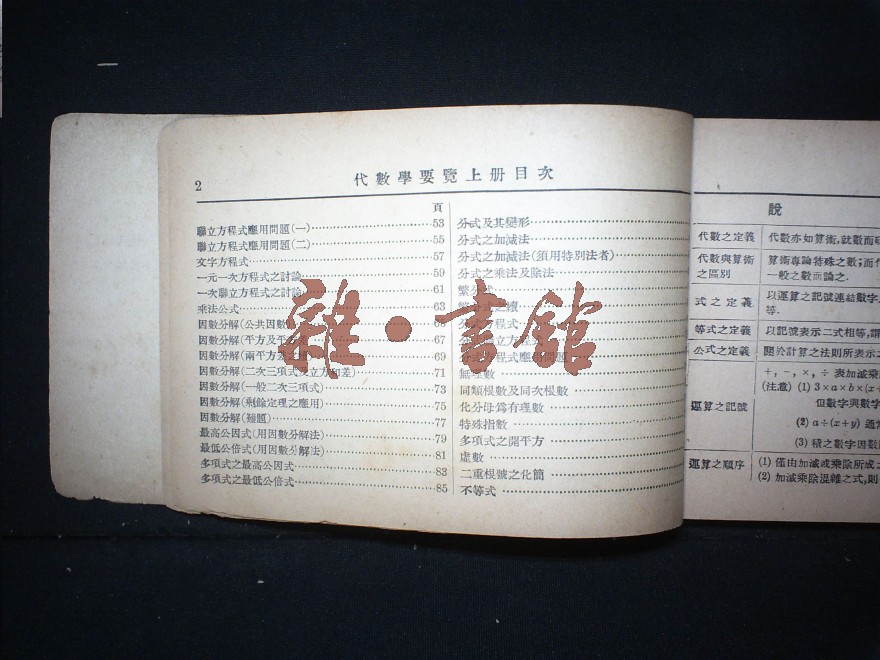 2
代數學要覽上册目次
頁
聯立方程式應用問題(一) 53
聯立方程式應用問題(二) 55
文字方程式 57
一元一次方程式之討論 59
一次聯立方程式之討論 61
乘法公式 63
因數分解(公共因數
因數分解(平方及平方差 67
因數分解(兩平方 69
因數分解(二次三項式及立方和差) 71
因數分解(一般二次三項式) 73
因數分解(剩餘定理之應用) 75
因數分解(難題) 77
最高公因式(用因數分解法) 79
最低公倍式(用因數分解法) 81
多項式之最高公因式 83
多項式之最低公倍式 85
分式及其變形
分式之加減法
分式之加減法(須用特別法者)
分式之乘法及除法
繁分式
分 方程式
問題
無理數
同類根數及同次根數
化分母爲有理數
特殊指數
多項式之開平方
虛數
二重根號之化簡
不等式
雜·書館
說
代數之定義 代數亦如算術,就數而
代數與算術之區別 算術專論特殊之數;而
一般之數而論之.
式之定義 以運算之記號連結數字
等.
等式之定義 以記號表示二式相等,
公式之定義 關於計算之法則所表示
運算之記號 +, -, ×, ÷ 表加減乘
(注意) (1) 3×a×b×(x+
但數字與數字
(2) a÷(x+y) 通
(3) 積之數字因數
運算之順序 (1) 僅由加減或乘除所成
(2) 加減乘除混雜之式,則